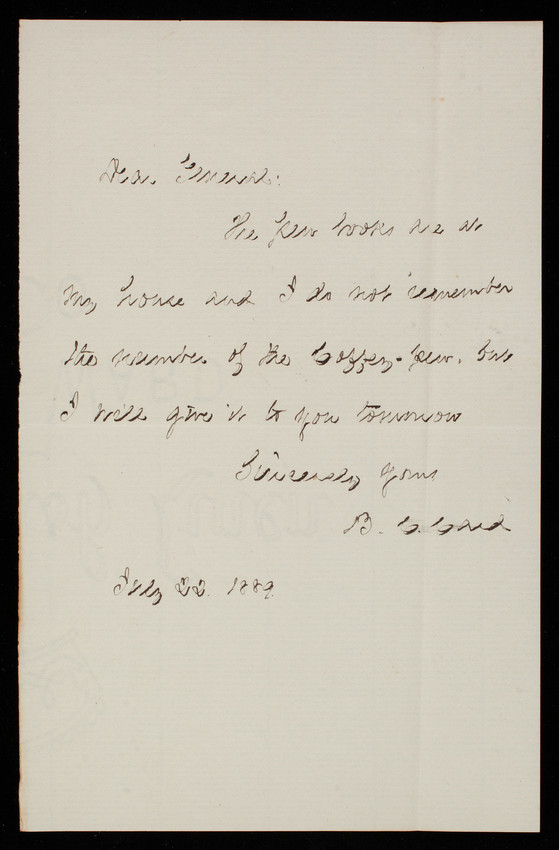 Dear General:
The pew books are at
my house and I do not remember
the number of the Coffey-pew. but
I will give it to you tomorrow
Sincerely yours
B. C. Card
July 22. 1889.